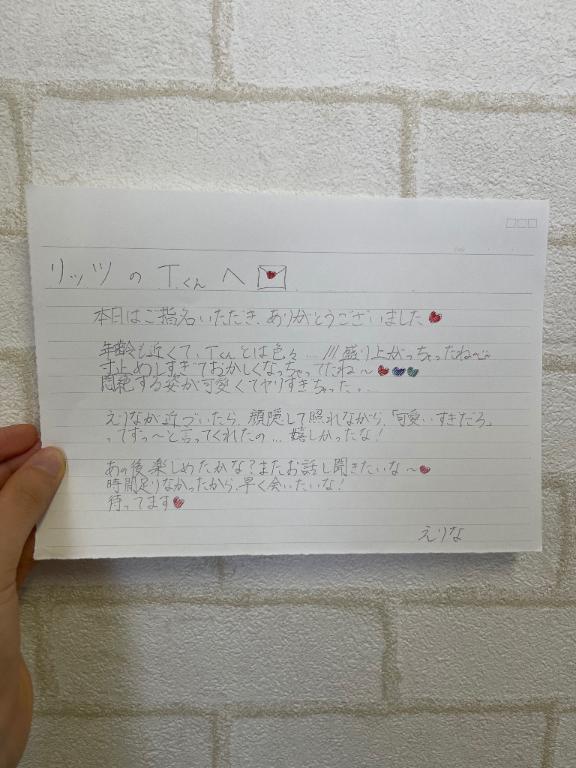 リッツの T.くんへ
本日はご指名いただき、ありがとうございました
年齢も近くて、T.くんとは色々...///盛り上がっちゃったね〜
寸止めしすぎておかしくなっちゃってたね〜
悶絶する姿が可愛くてヤりすぎちゃった...
えりなが近づいたら、顔隠して照れながら、「可愛いすぎだろ」
ってずっ〜と言ってくれたの...嬉しかったな!
あの後楽しめたかな?またお話し聞きたいな〜
時間足りなかったから、早く会いたいな!
待ってます
えりな